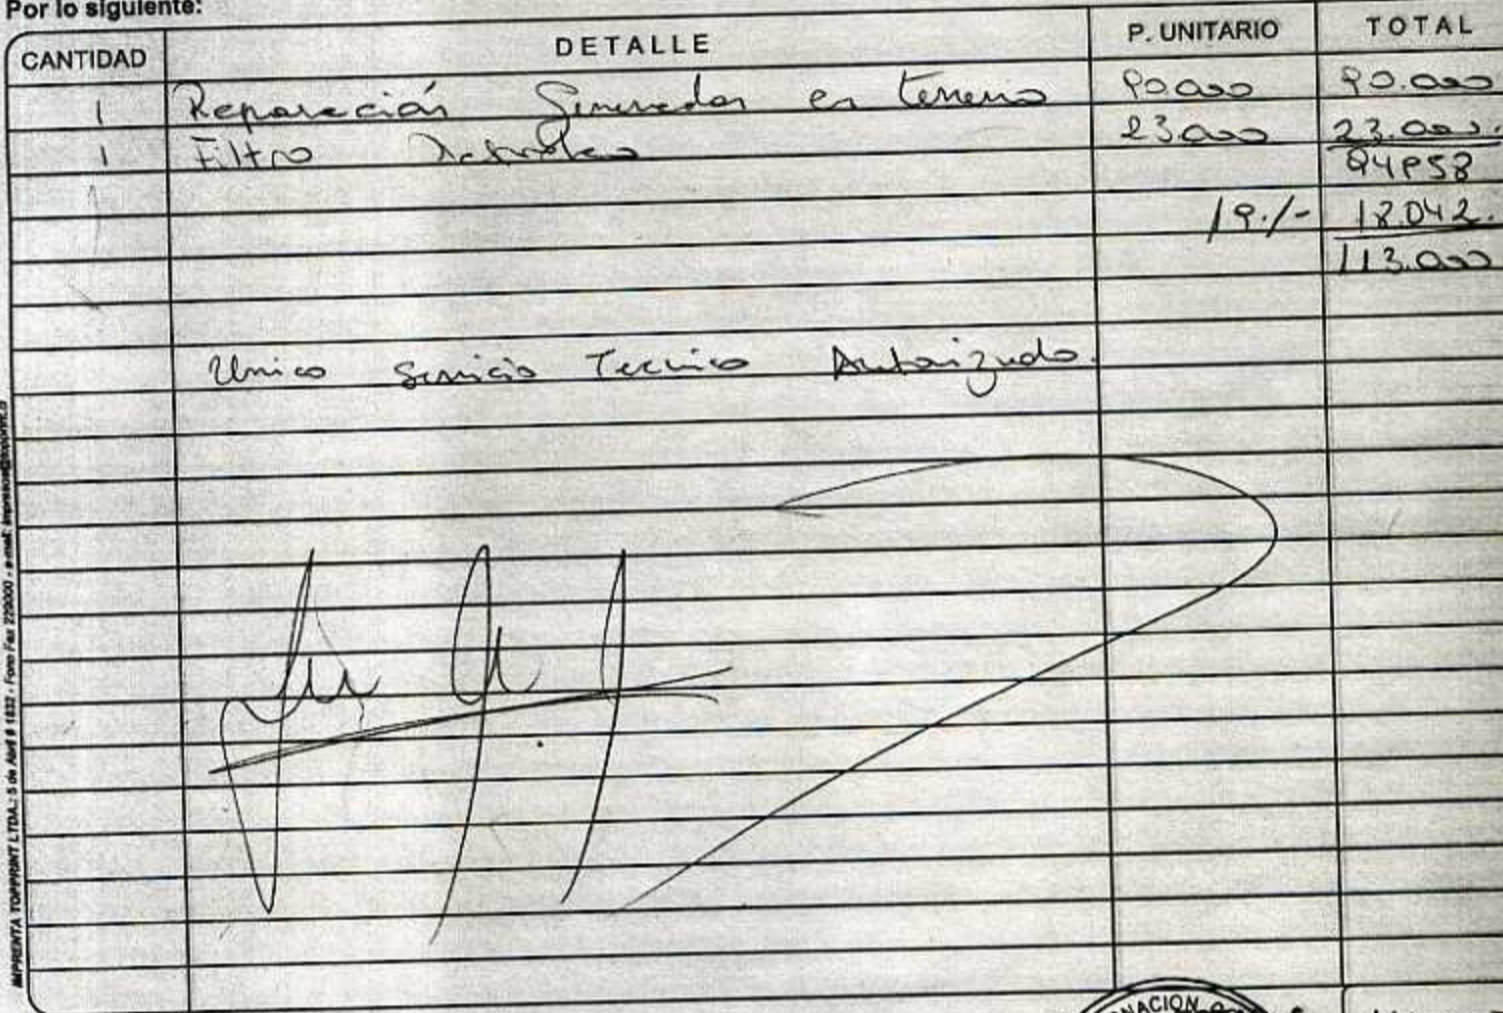 Por lo siguiente:
CANTIDAD DETALLE P. UNITARIO TOTAL
1 Reparación Generador en terreno 90.000 90.000
1 Filtro Petroleo 23.000 23.000.
94958
19./- 18.042.
113.000
Unico Servicio Tecnico Autorizado.
IMPRENTA TOPPRINT LTDA.: 5 de Abril # 1632 - Fono Fax 229000 - e-mail: